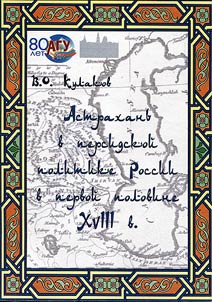 80 АГУ
лет
В.О. Кулаков
Астрахань
в персидской
политике России
в первой половине
XVIII в.